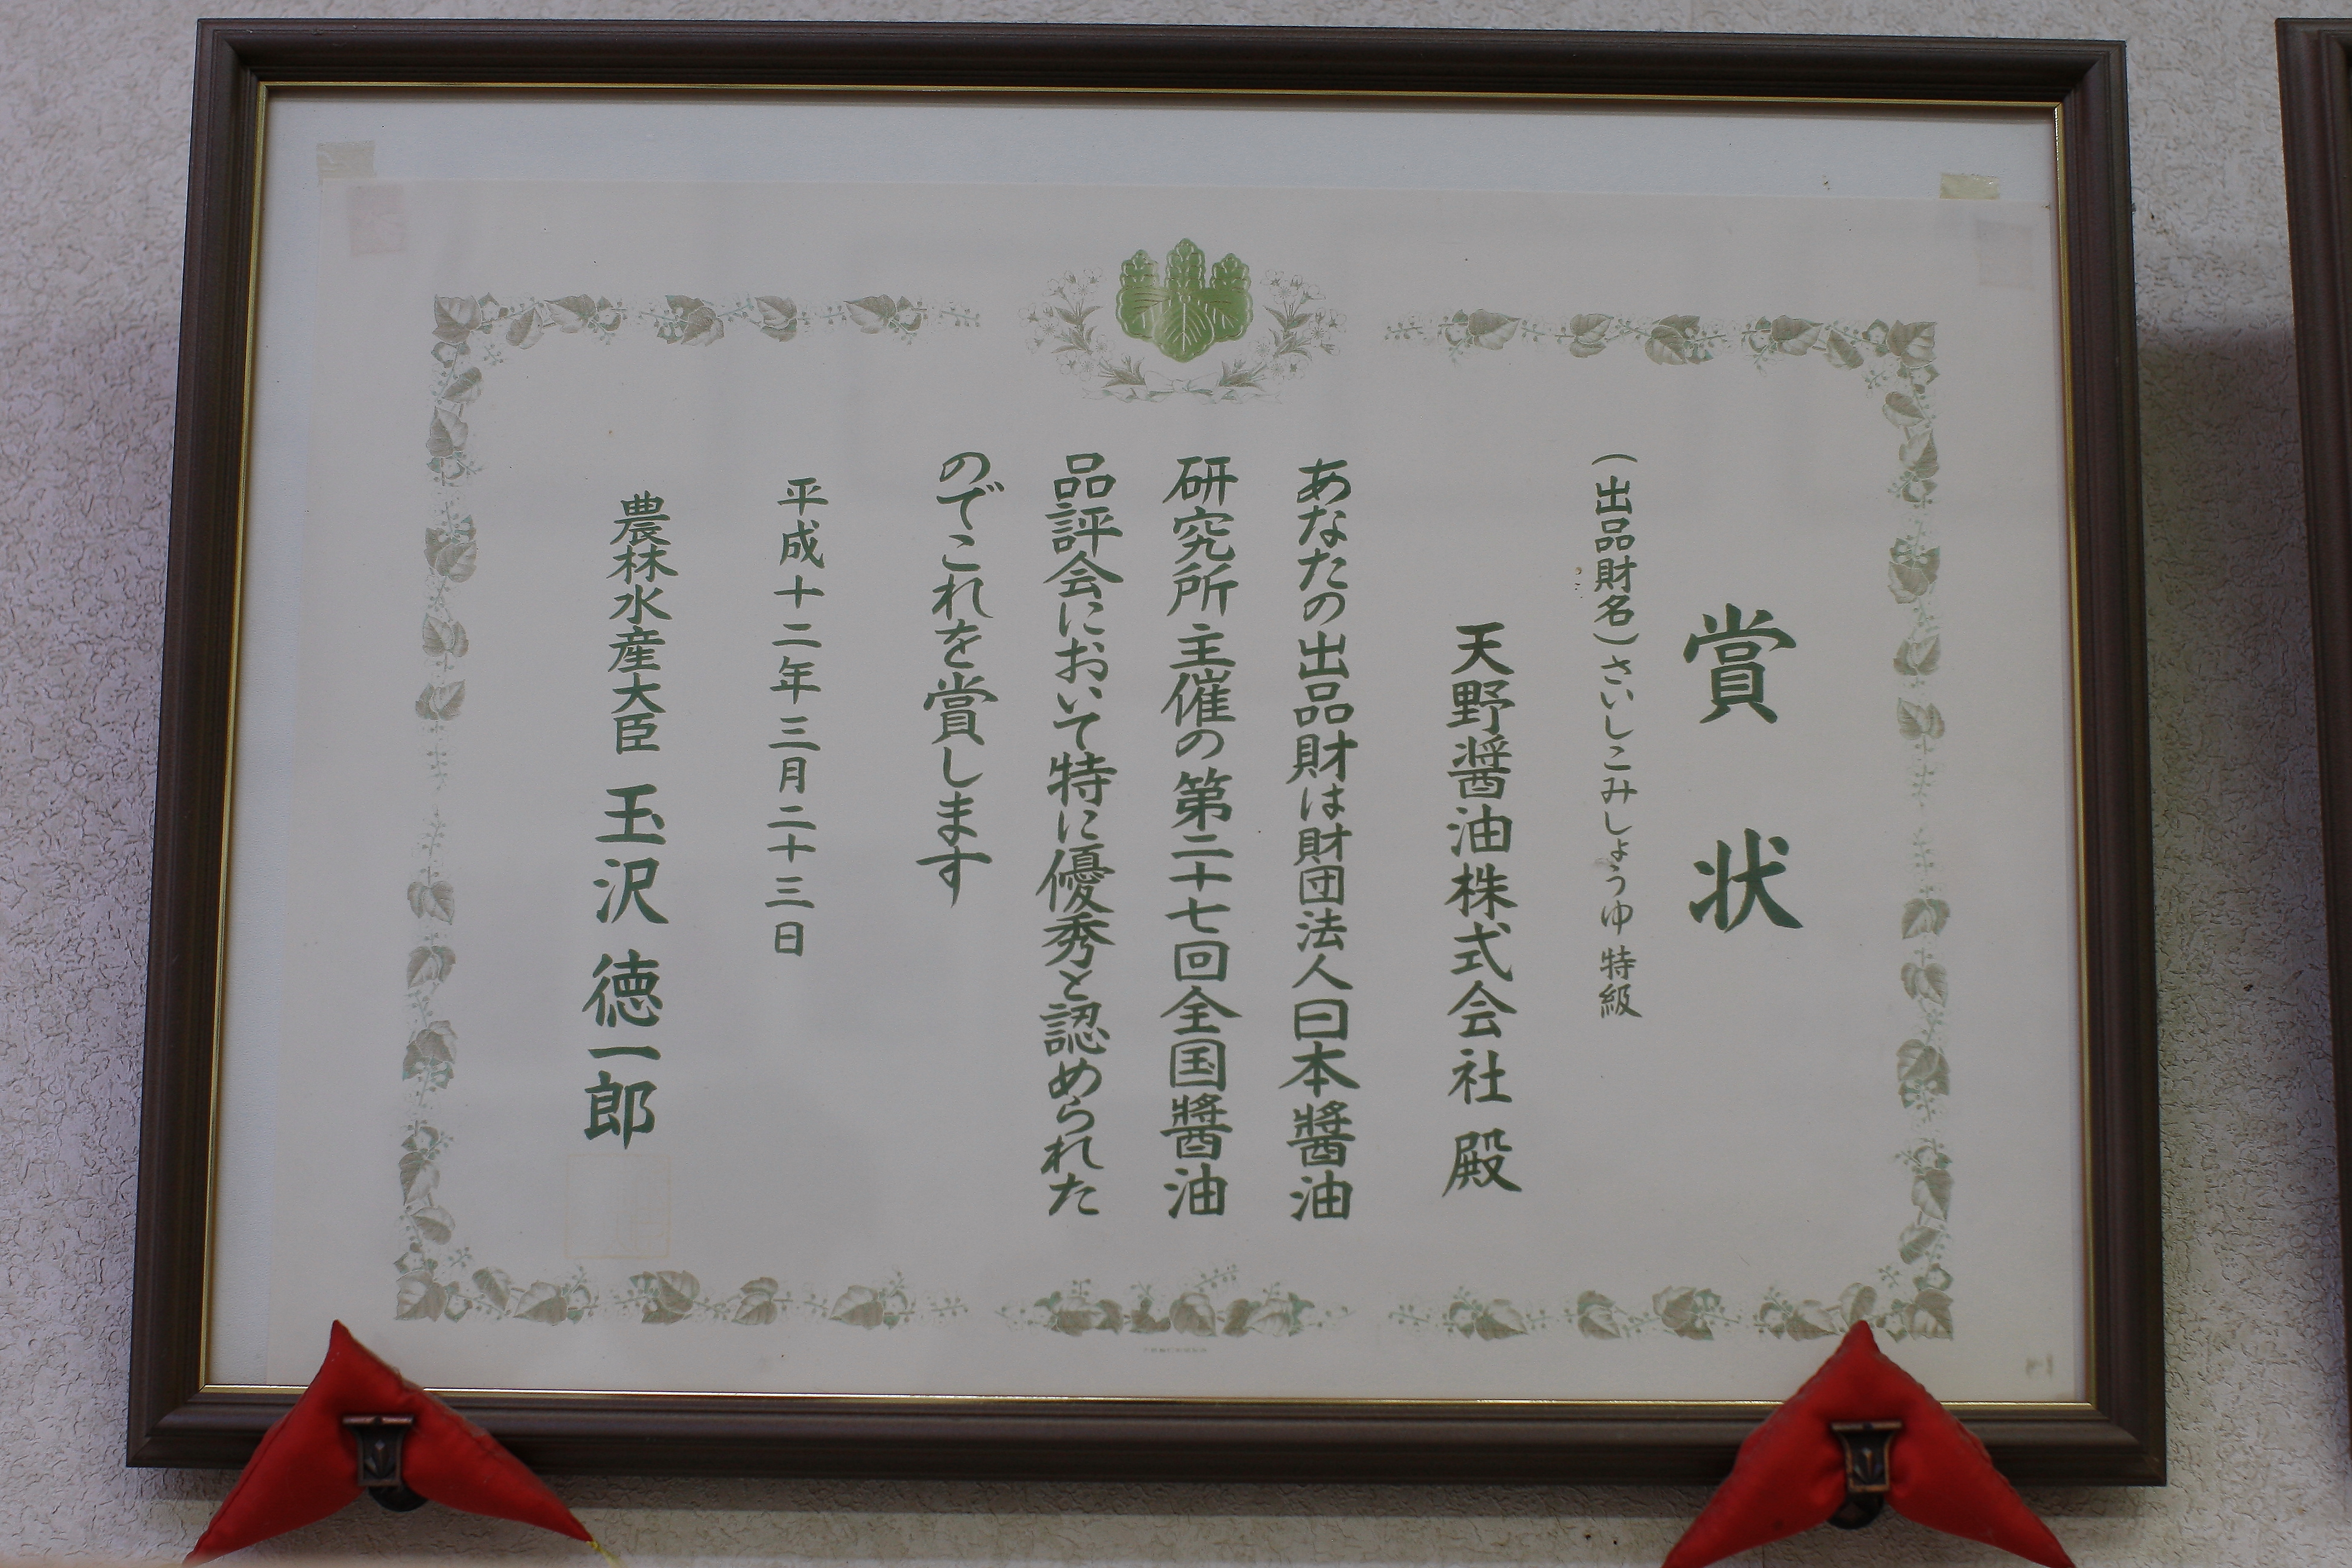 賞状
（出品財名）さいしこみしょうゆ 特級
天野醤油株式会社 殿
あなたの出品財は財団法人日本醬油
研究所主催の第二十七回全国醬油
品評会において特に優秀と認められた
のでこれを賞します
平成十二年三月二十三日
農林水産大臣 玉沢徳一郎